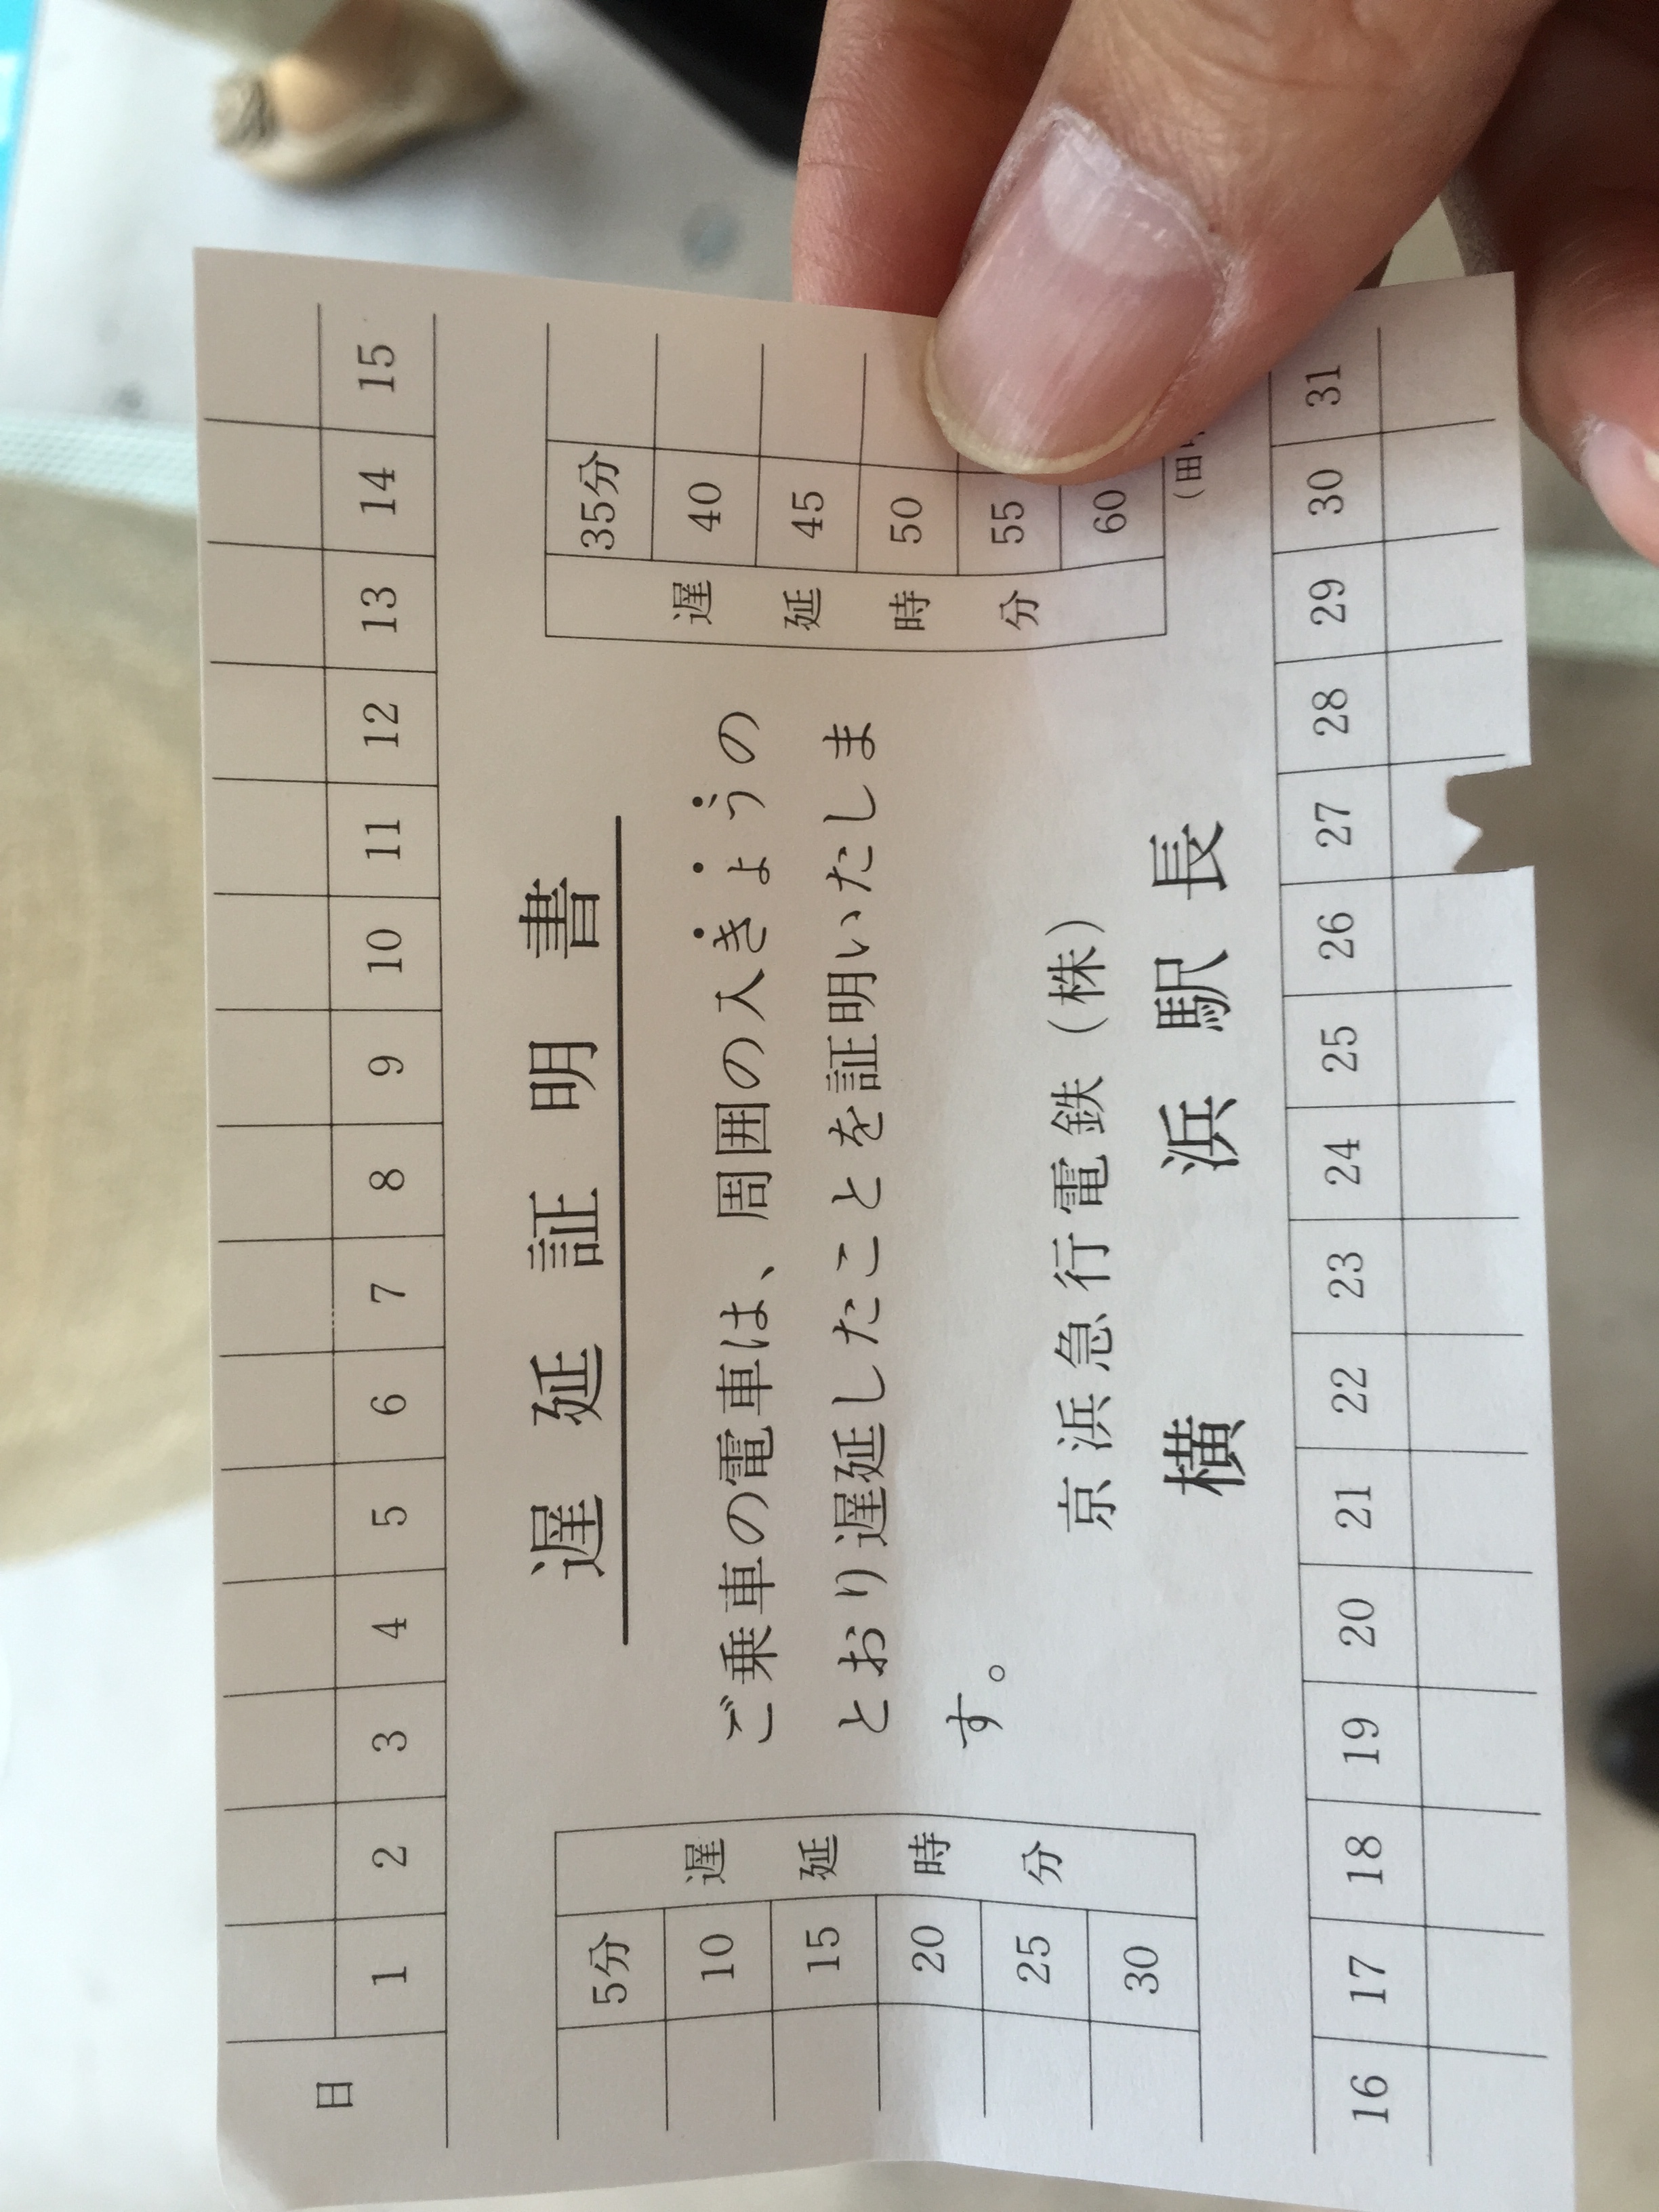 日 1 2 3 4 5 6 7 8 9 10 11 12 13 14 15
遅延証明書
5分 10 15 20 25 30
遅延時分
ご乗車の電車は、周囲の入きょうの
とおり遅延したことを証明いたしま
す。
京浜急行電鉄（株）
横浜駅長
遅延時分
35分 40 45 50 55 60
（田
16 17 18 19 20 21 22 23 24 25 26 27 28 29 30 31